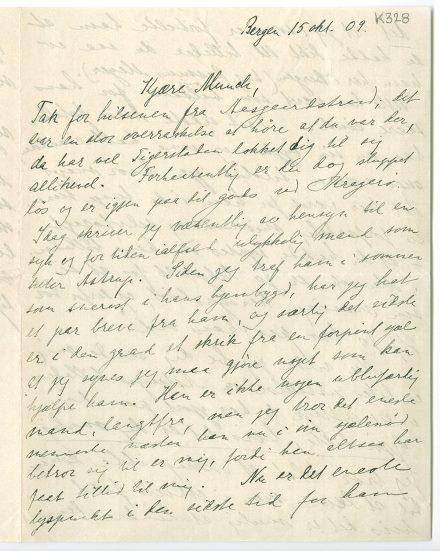 K328
Bergen 15 okt. 09.
Kjære Munch,
Tak for hilsenen fra Aasgaardstrand; det
var en stor overraskelse at høre at du var der,
da har vel Tigerstaden lokket dig til sig
allikevel. Forhaabentlig er du dog sluppet
løs og er igjen paa dit gods ved Kragerø.
Idag skriver jeg væsentlig av hensyn til en
syk og for tiden ialfald ulykkelig mand som
heter Astrup. Siden jeg traf ham i sommer
som snarest i hans hjembygd, har jeg hat
et par breve fra ham, og særlig det sidste
er i den grad et skrik fra en forpint sjæl
at jeg synes jeg maa gjøre noget som kan
hjælpe ham. Han er ikke nogen ublufærdig
mand, langtfra, men jeg tror det eneste
menneske næsten han nu i sin sjælenød
betror sig til er mig, fordi han altsaa har
faat tillid til mig. Nu er det eneste
lyspunkt i den sidste tid for ham